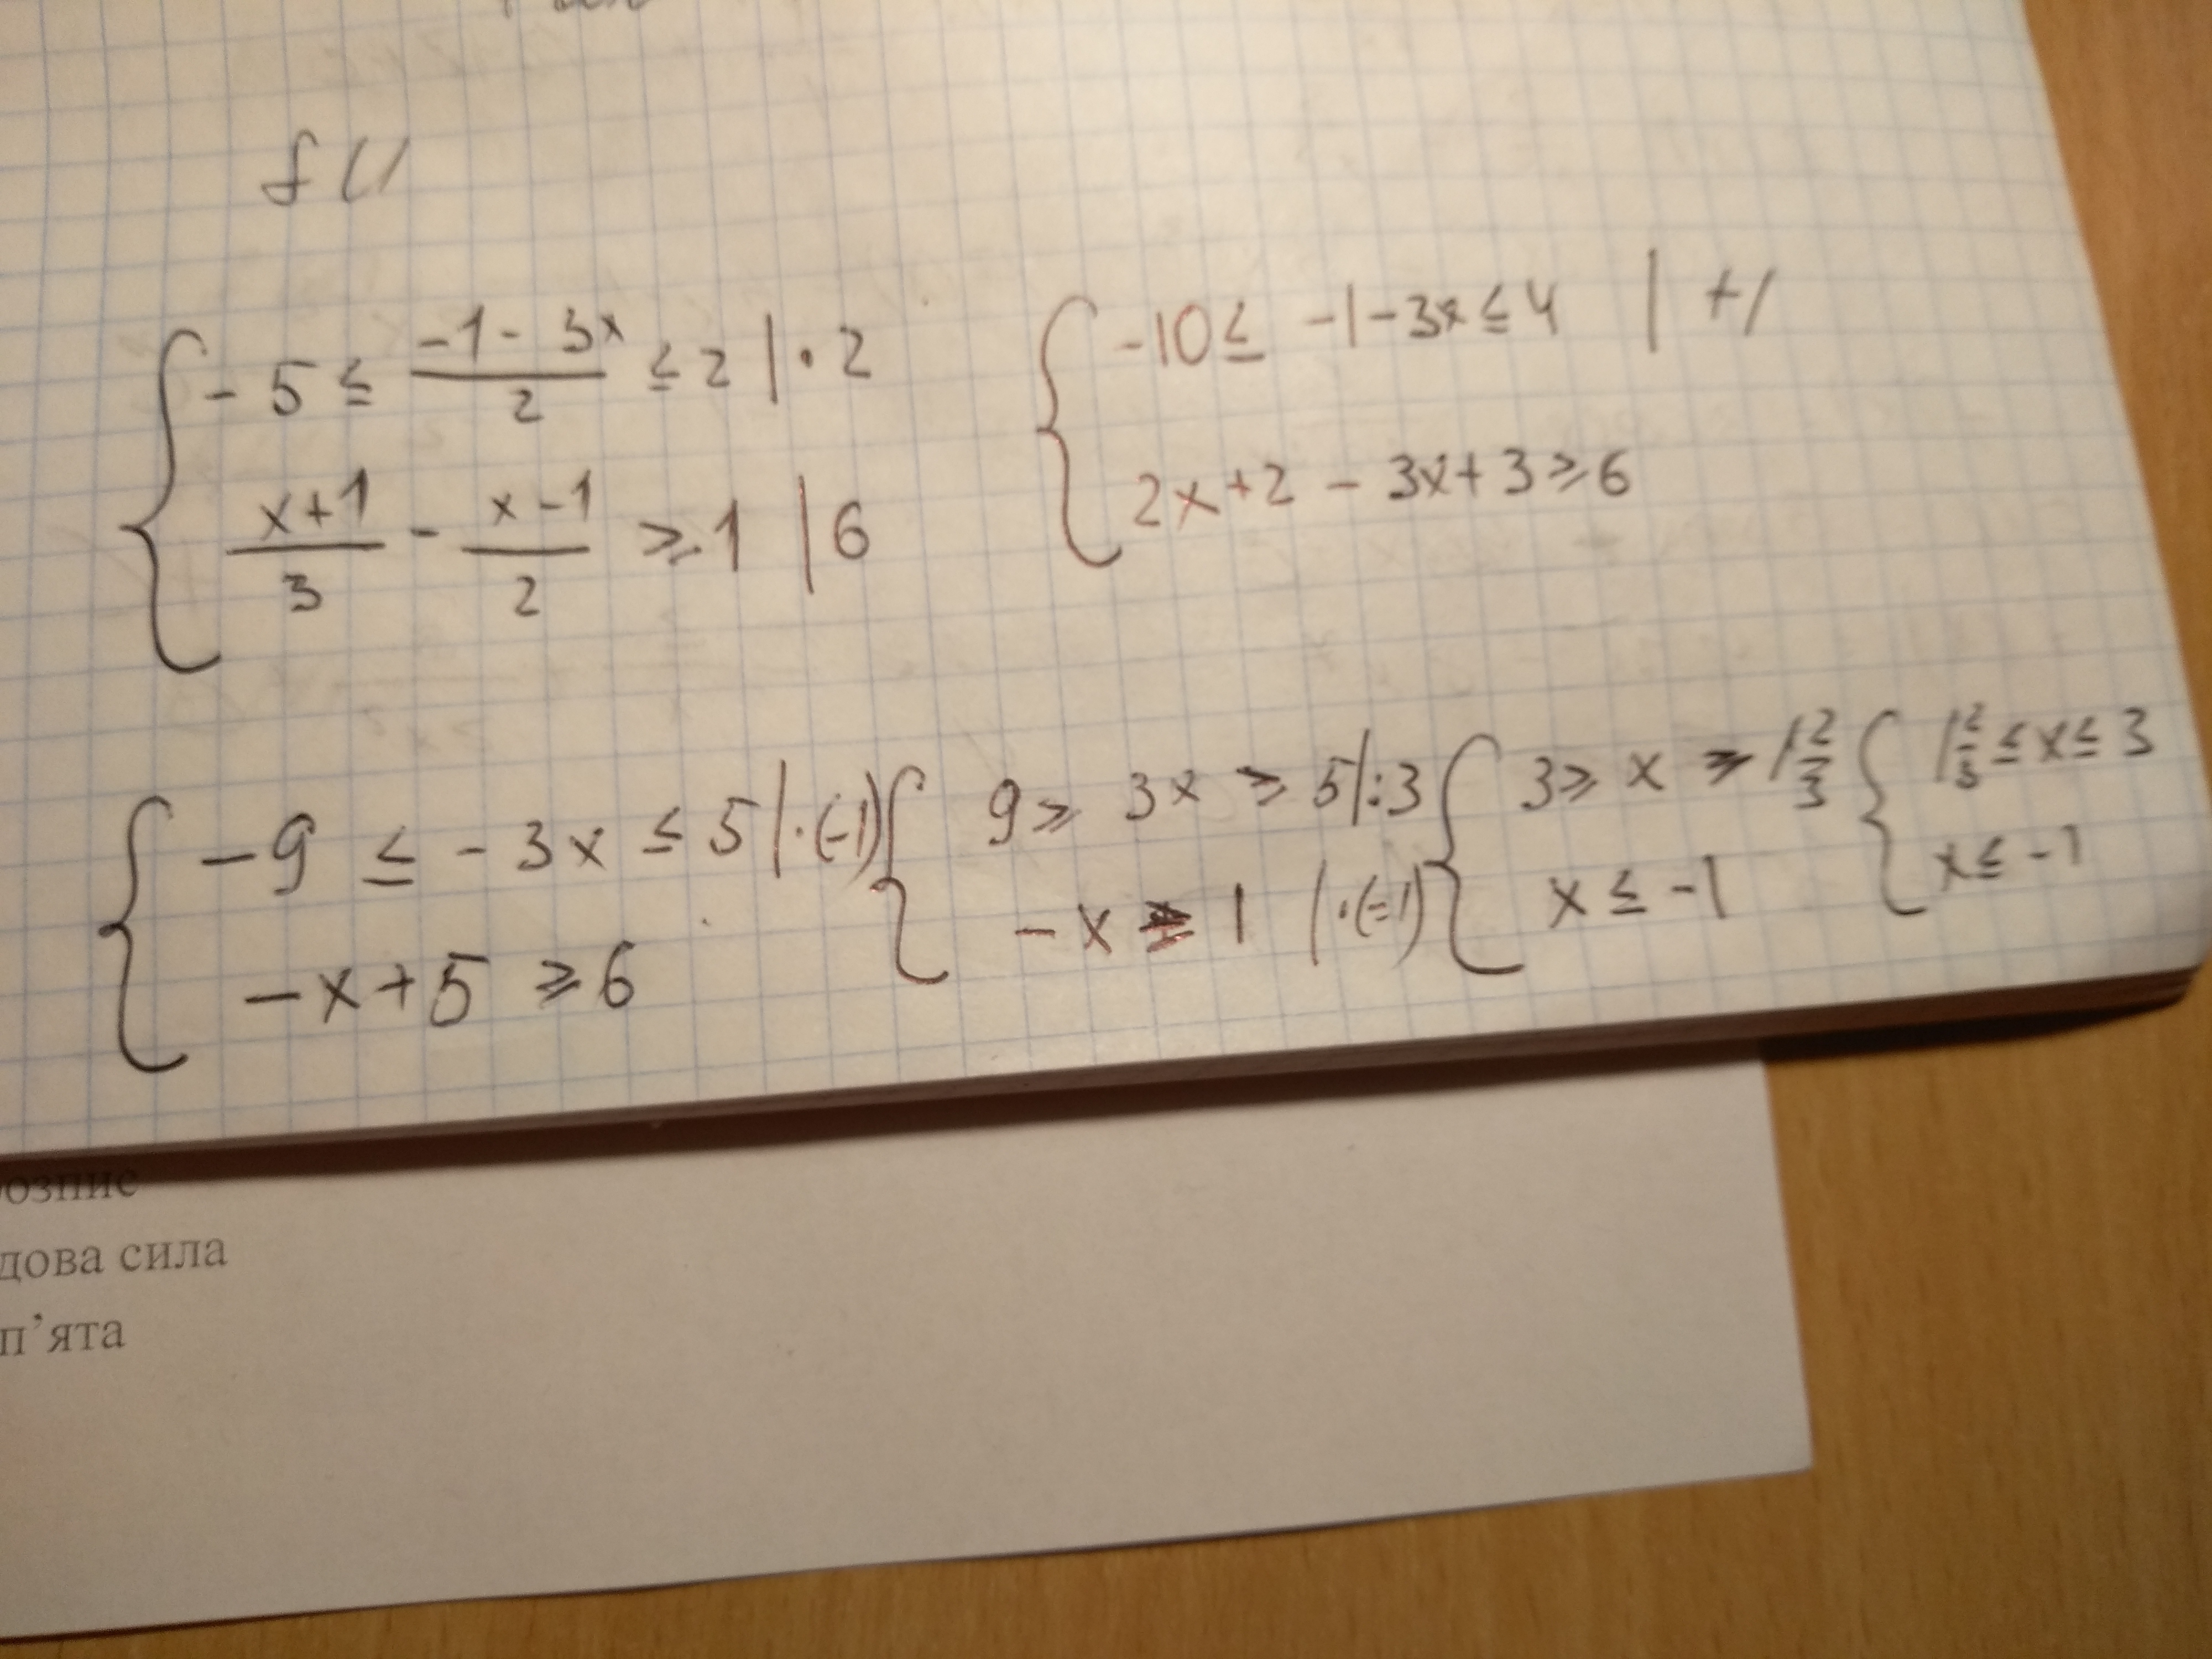 { -5 ≤ (-1-3x)/2 ≤ 2 | · 2
(x+1)/3 - (x-1)/2 ≥ 1 | 6
{ -10 ≤ -1-3x ≤ 4 | +1
2x+2 - 3x+3 ≥ 6
{ -9 ≤ -3x ≤ 5 | ·(-1)
-x+5 ≥ 6
{ 9 ≥ 3x ≥ 5 | :3
-x ≥ 1 | ·(-1)
{ 3 ≥ x ≥ 1 2/3
x ≤ -1
{ 1 2/3 ≤ x ≤ 3
x ≤ -1
дова сила
п’ята